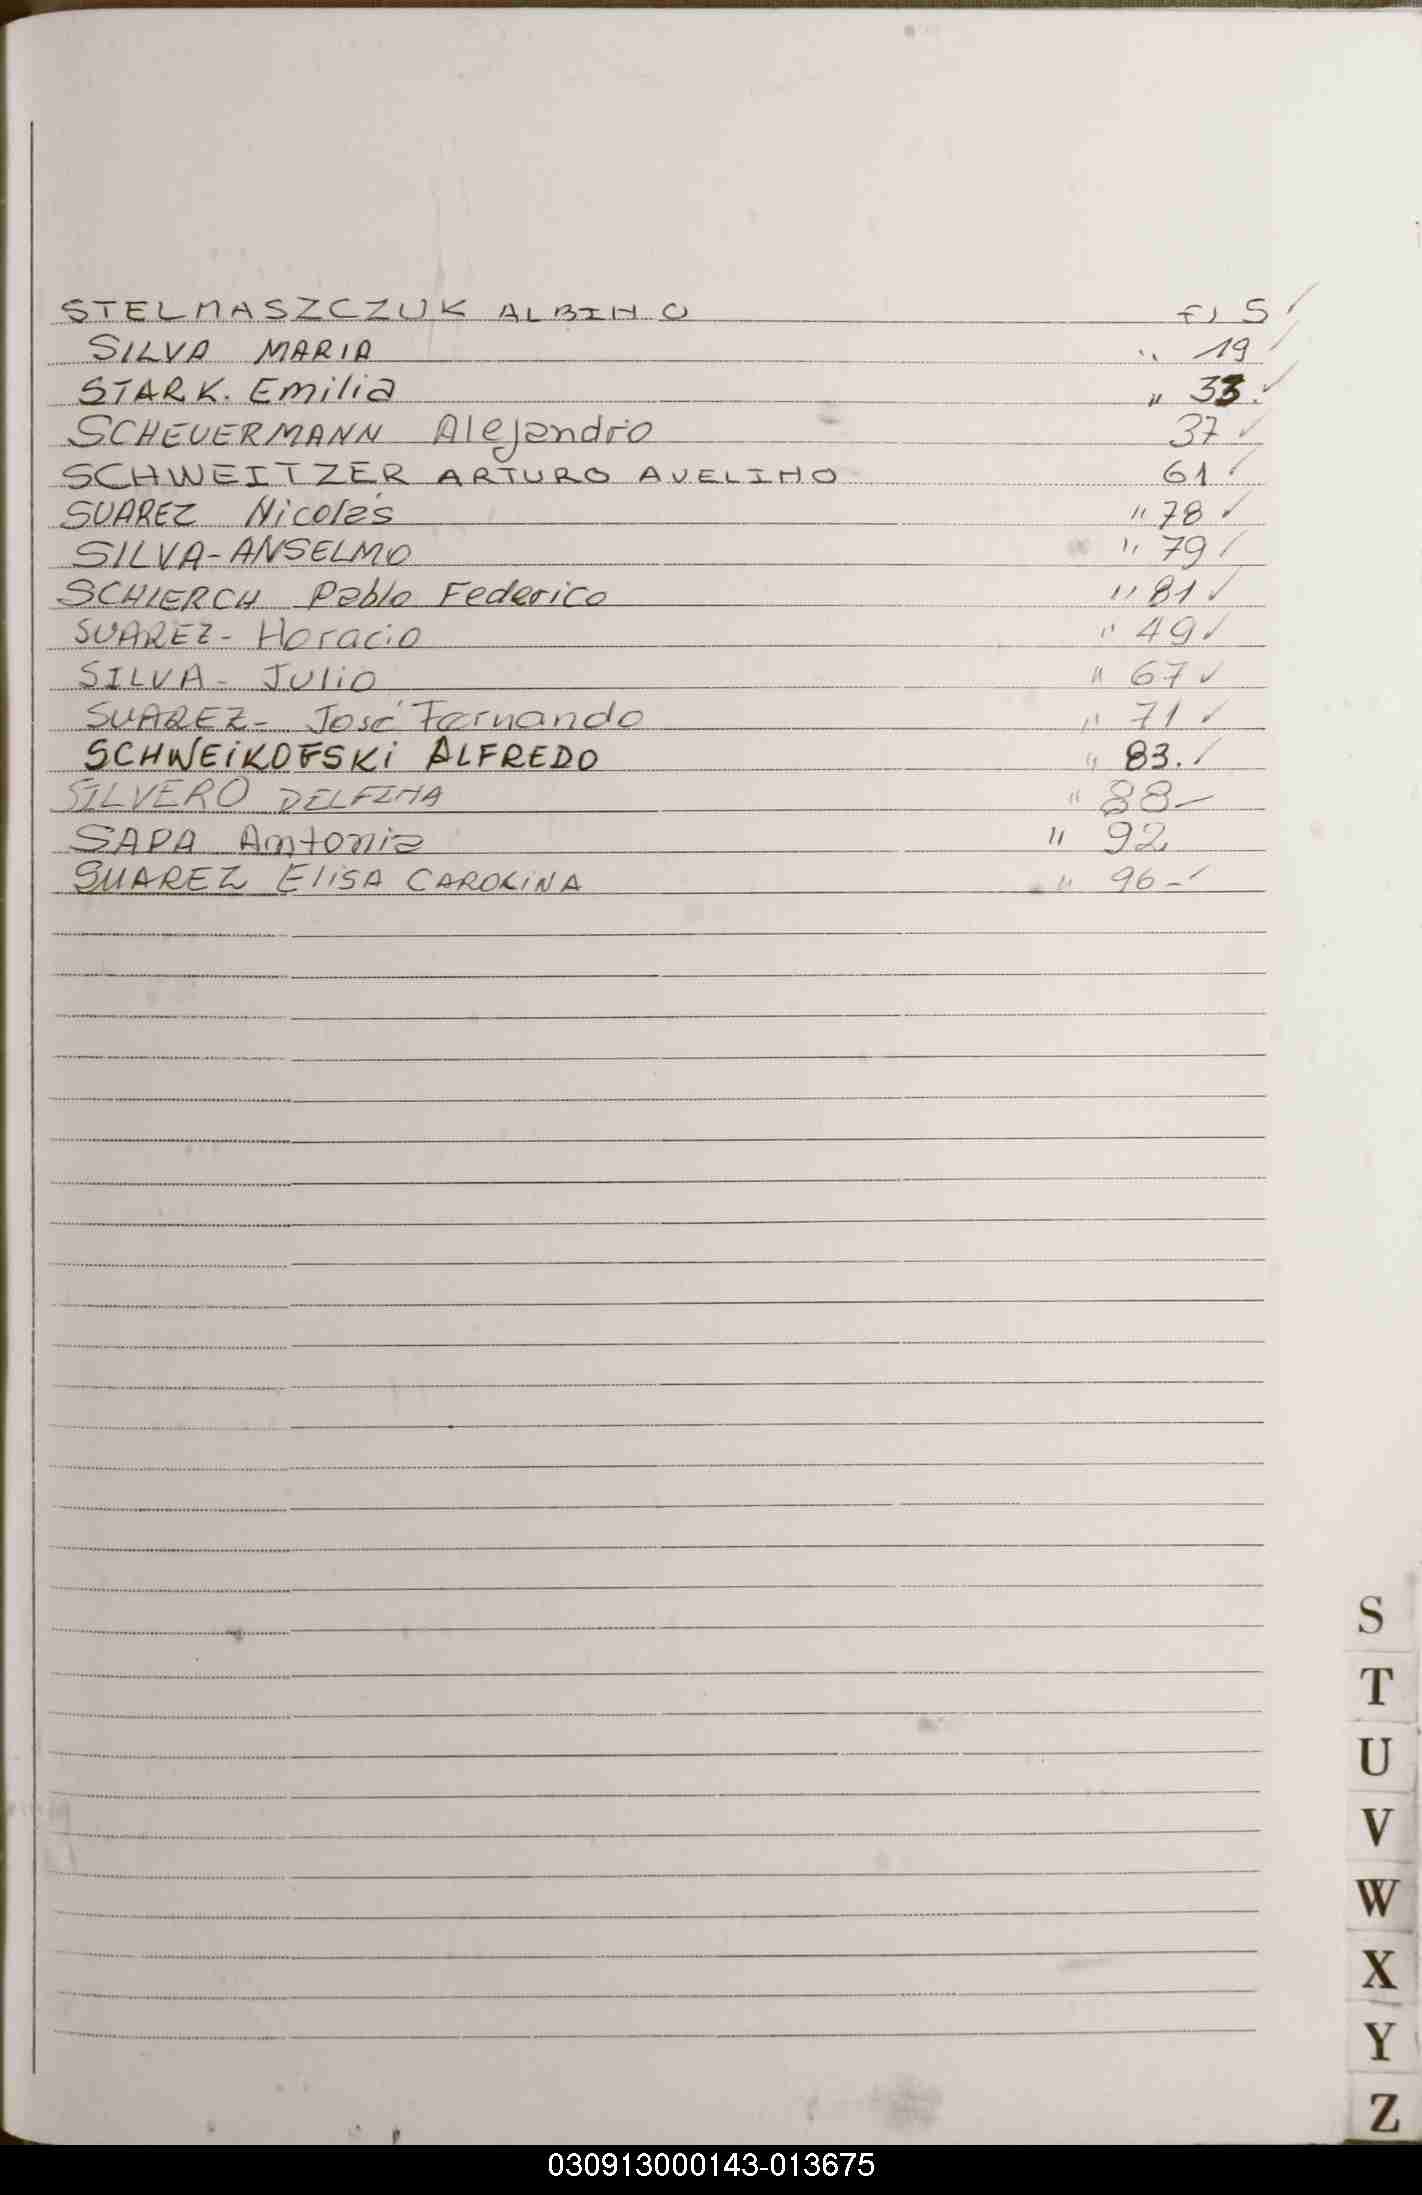 STELMASZCZUK ALBINO FJ 5 ✓
SILVA MARIA " 19 ✓
STARK. Emilia " 33. ✓
SCHEUERMANN Alejandro 37 ✓
SCHWEITZER ARTURO AVELINO 61 ✓
SUAREZ Nicolás " 78 ✓
SILVA-ANSELMO " 79 ✓
SCHIERCH Pablo Federico " 81 ✓
SUAREZ- Horacio " 49 ✓
SILVA- Julio " 67 ✓
SUAREZ- José Fernando " 71 ✓
SCHWEIKOFSKI ALFREDO " 83. ✓
SILVERO DELFINA " 88 -
SAPA Antonia " 92
SUAREZ ELISA CAROLINA " 96 - ✓
S
T
U
V
W
X
Y
Z
030913000143-013675